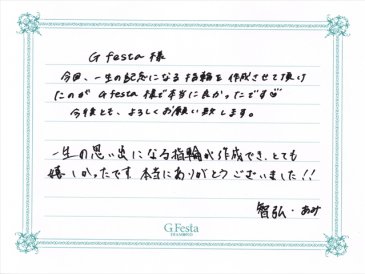 G festa 様
今回、一生の記念になる指輪を作成させて頂け
たのが G festa 様で本当に良かったです
今後とも、よろしくお願い致します。
一生の思い出になる指輪が作成でき、とても
嬉しかったです 本当にありがとうございました!!
智弘・あみ
G.Festa
DIAMOND